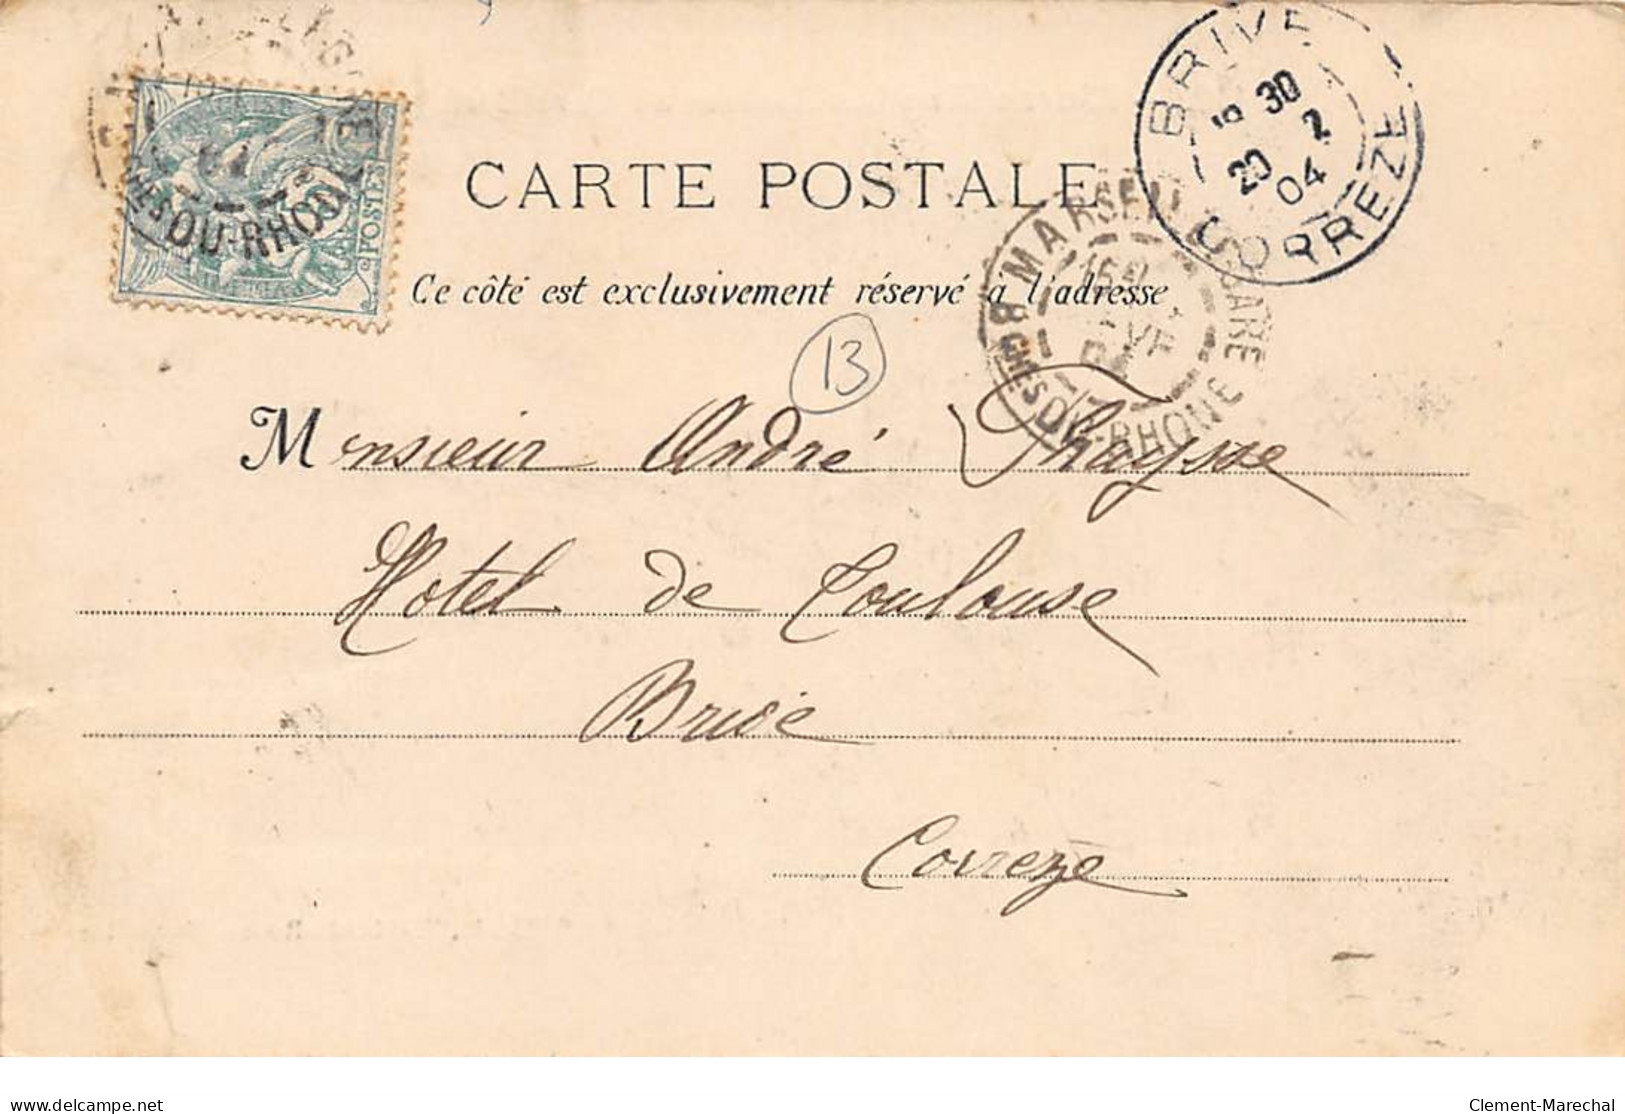 CARTE POSTALE
Ce côté est exclusivement réservé à l'adresse
13
Monsieur André Phaysse
Hotel de Toulouse
Brive
Correze
BRIVE
30
20 2
04
CORREZE
MARSEILLE GARE
BCHES DU-RHONE
GARE
BCHES DU-RHONE
POSTES
delcampe.net
Clement-Marechal